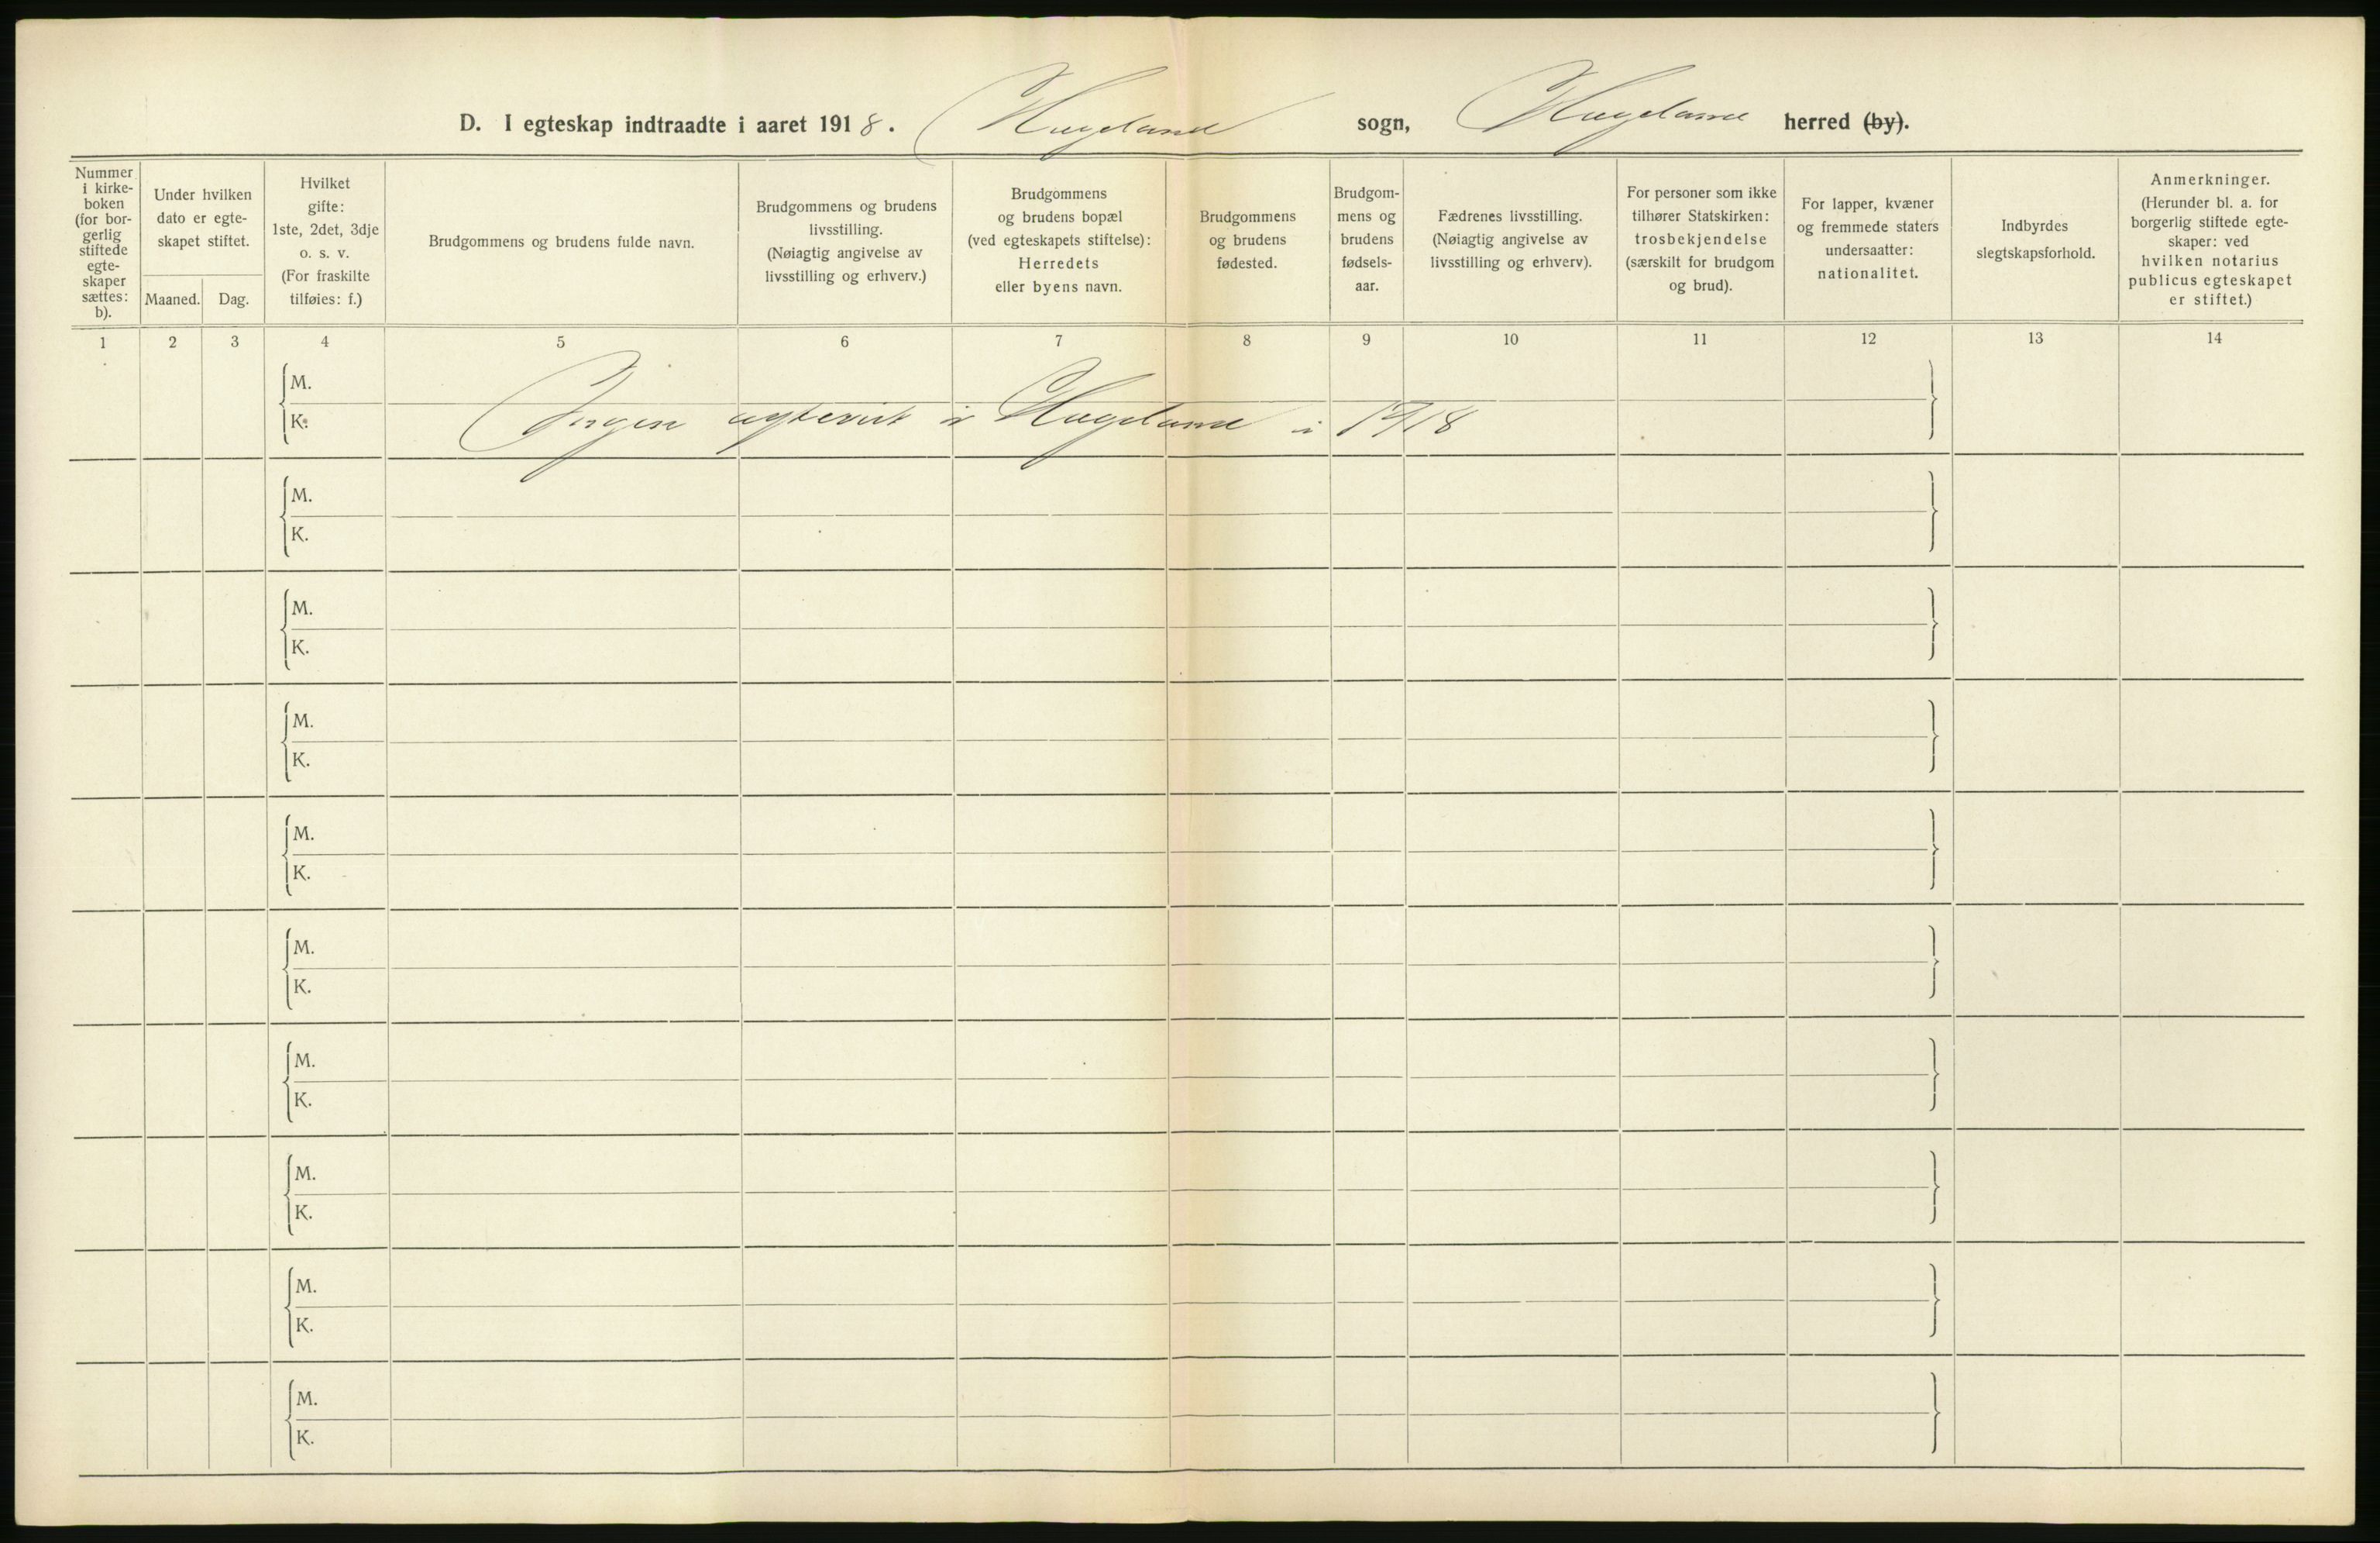 D. I egteskap indtraadte i aaret 1918. Hægeland sogn, Hægeland herred (by).
Nummer i kirke-
boken
(for bor-
gerlig
stiftede
egte-
skaper
sættes:
b).
Under hvilken
dato er egte-
skapet stiftet.
Maaned. Dag.
Hvilket
gifte:
1ste, 2det, 3dje
o. s. v.
(For fraskilte
tilføies: f.)
Brudgommens og brudens fulde navn.
Brudgommens og brudens
livsstilling.
(Nøiagtig angivelse av
livsstilling og erhverv.)
Brudgommens
og brudens bopæl
(ved egteskapets stiftelse):
Herredets
eller byens navn.
Brudgommens
og brudens
fødested.
Brudgom-
mens og
brudens
fødsels-
aar.
Fædrenes livsstilling.
(Nøiagtig angivelse av
livsstilling og erhverv).
For personer som ikke
tilhører Statskirken:
trosbekjendelse
(særskilt for brudgom
og brud).
For lapper, kvæner
og fremmede staters
undersaatter:
nationalitet.
Indbyrdes
slegtskapsforhold.
Anmerkninger.
(Herunder bl. a. for
borgerlig stiftede egte-
skaper: ved
hvilken notarius
publicus egteskapet
er stiftet.)
1 2 3 4 5 6 7 8 9 10 11 12 13 14
M.
K. Ingen egteviet i Hægeland i 1918
M.
K.
M.
K.
M.
K.
M.
K.
M.
K.
M.
K.
M.
K.
M.
K.
M.
K.